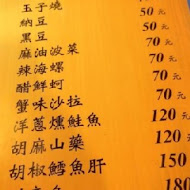 玉子燒
納豆 50元
黑豆 50元
麻油波菜 70元
辣海螺 70元
醋鮮蚵 70元
蟹味沙拉 70元
洋蔥燻鮭魚 120元
胡麻山藥 120元
胡椒鱈魚肝 150元
180